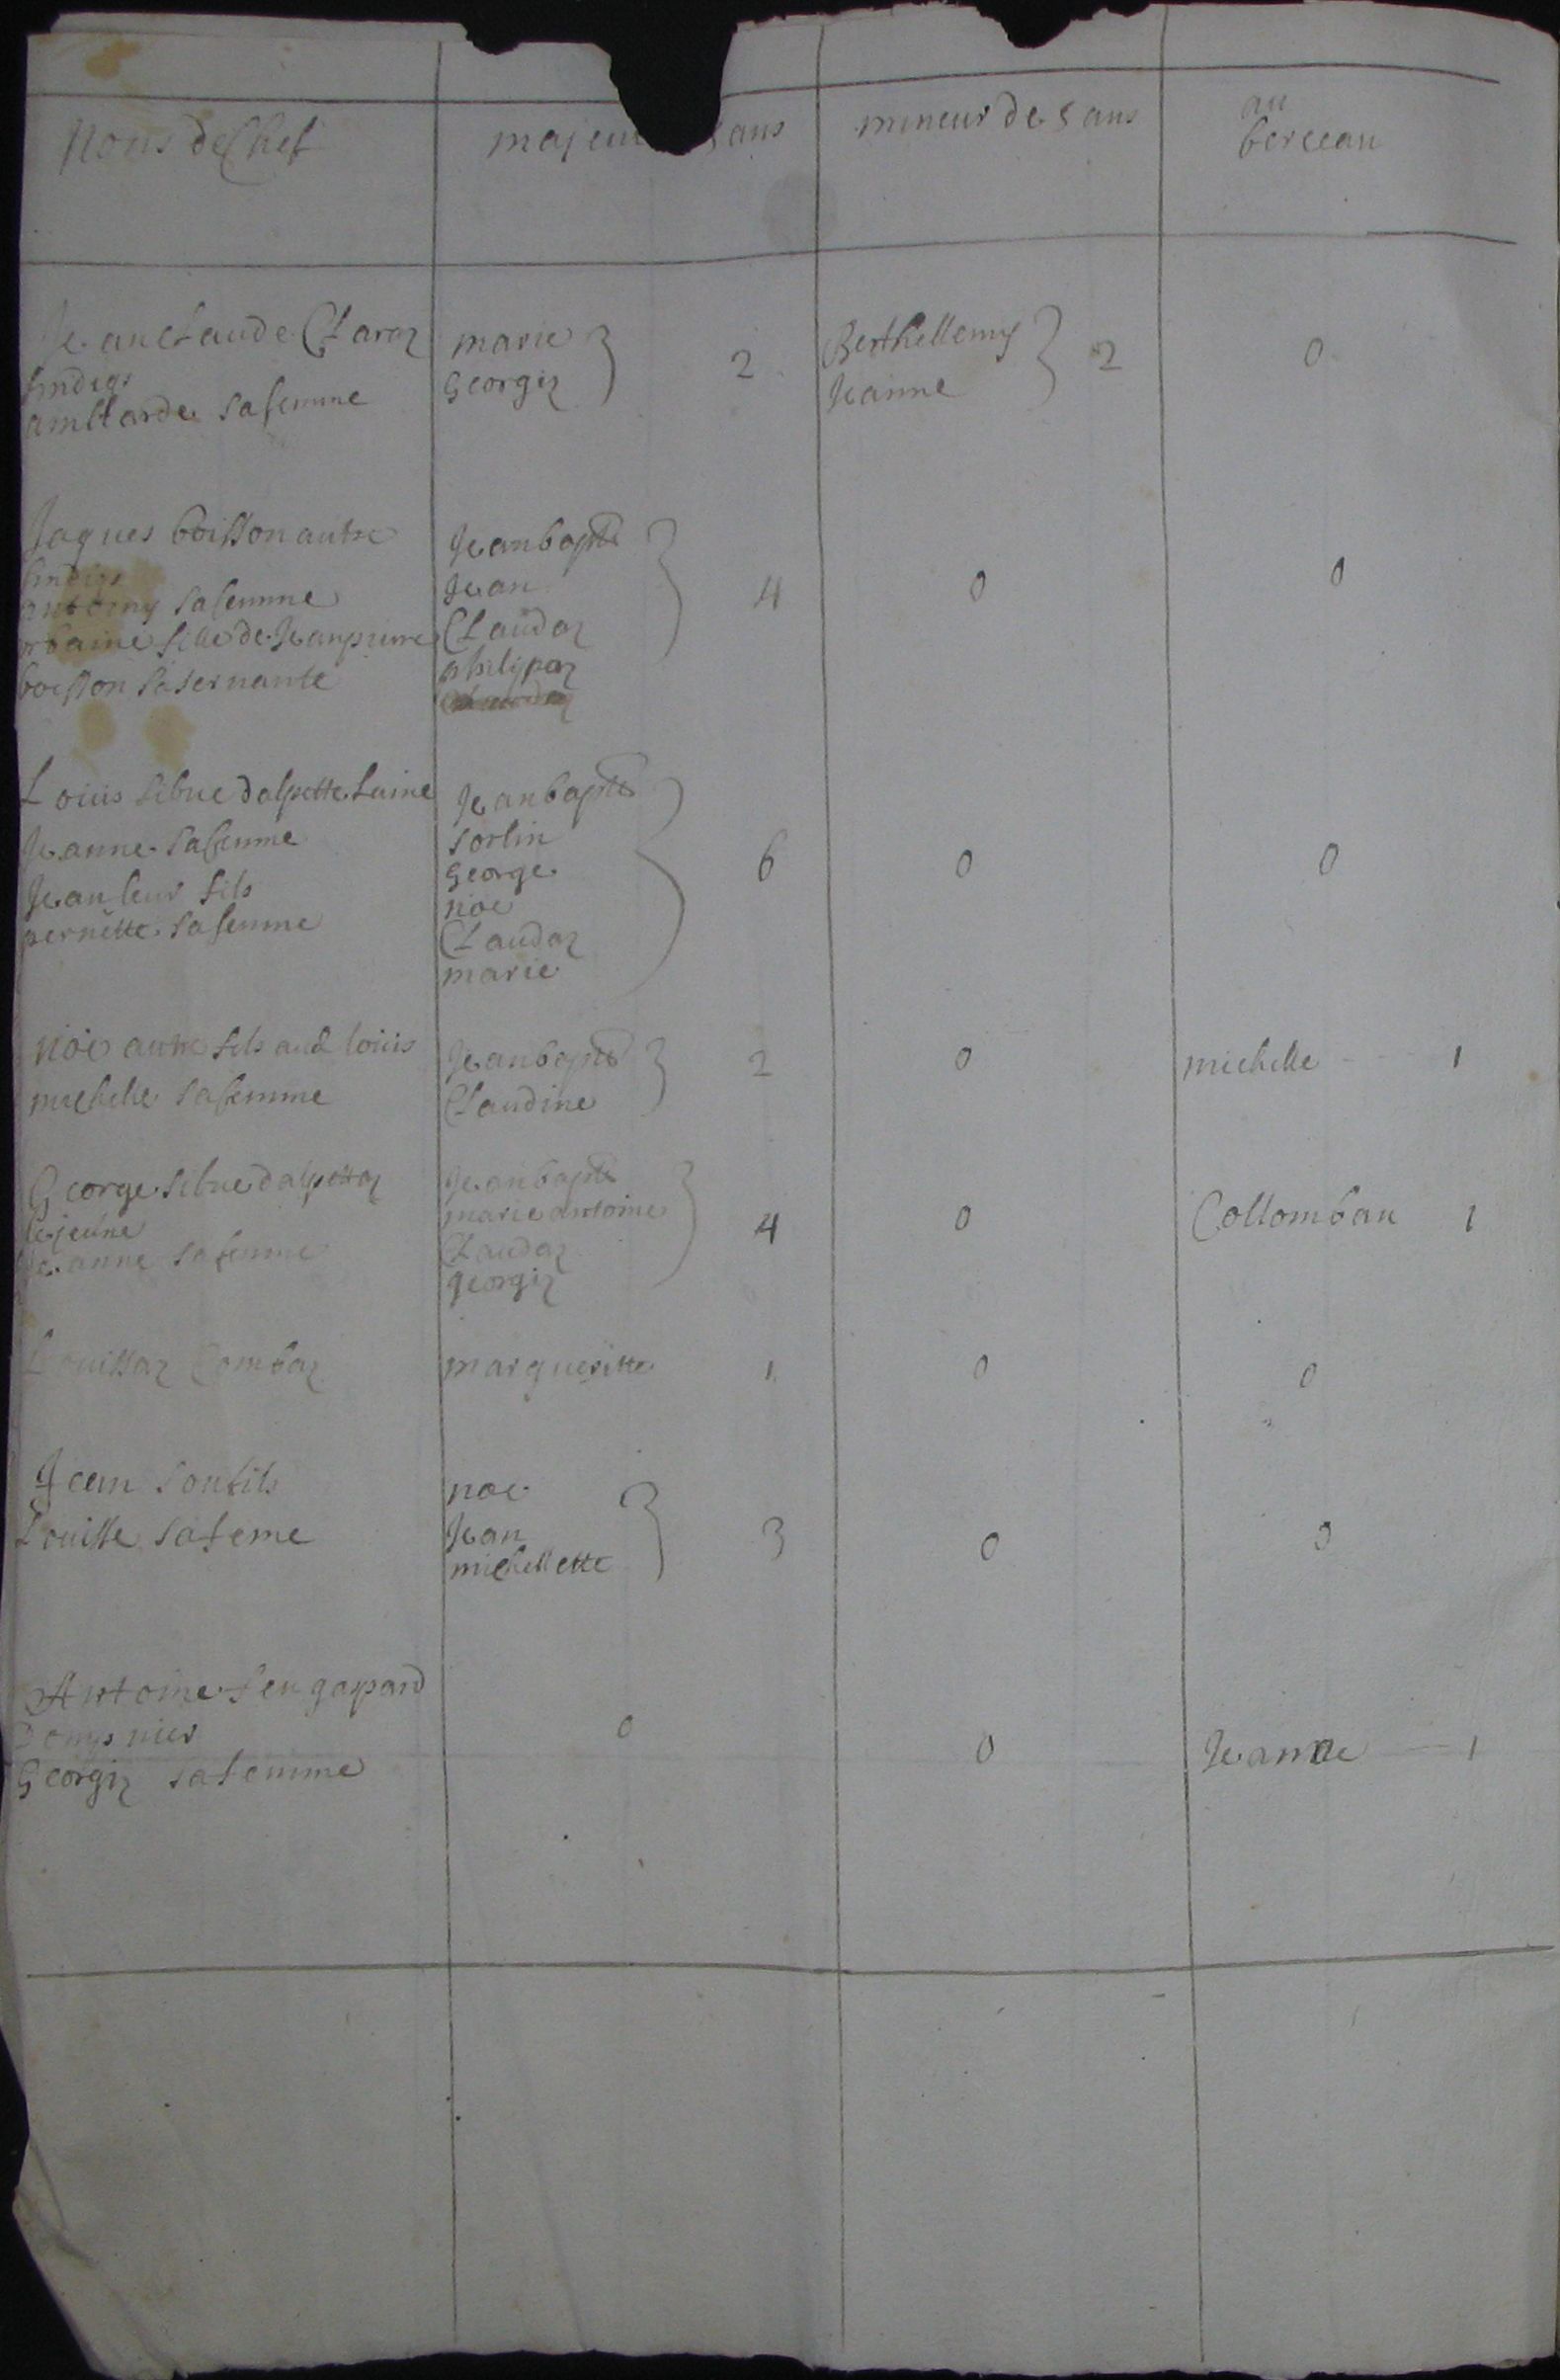 Noms de Chef
majeur 5 ans
mineur de 5 ans
au
berceau
Jeanclaude Claraz
sindigs
amblarde sa femme
marie
Georgiz
2
Berthellemy
Jeanne
2
0
Jaques boisson autre
sindigs
antoiny sa femme
urbaine fille de Jeanpierre
boisson sa servante
Jeanbapte
Jean
Claudaz
philipaz
4
0
0
Louis sibue dalpette laine
Jeanne sa femme
Jean leur fils
pernette sa femme
Jeanbapte
sorlin
george
noe
Claudaz
marie
6
0
0
noe autre fils aud louis
michelle sa femme
Jeanbapte
Claudine
2
0
michelle 1
George sibue dalpettaz
le jeune
Jeanne sa femme
Jeanbapte
marie antoine
Claudaz
georgiz
4
0
Collomban 1
Louissaz Combaz
margueritte
1
0
0
Jean son fils
Louisse sa feme
noe
Jean
michellette
3
0
0
Antoine feu gaspard
domp nier
Georgiz sa femme
0
0
Jeanne 1